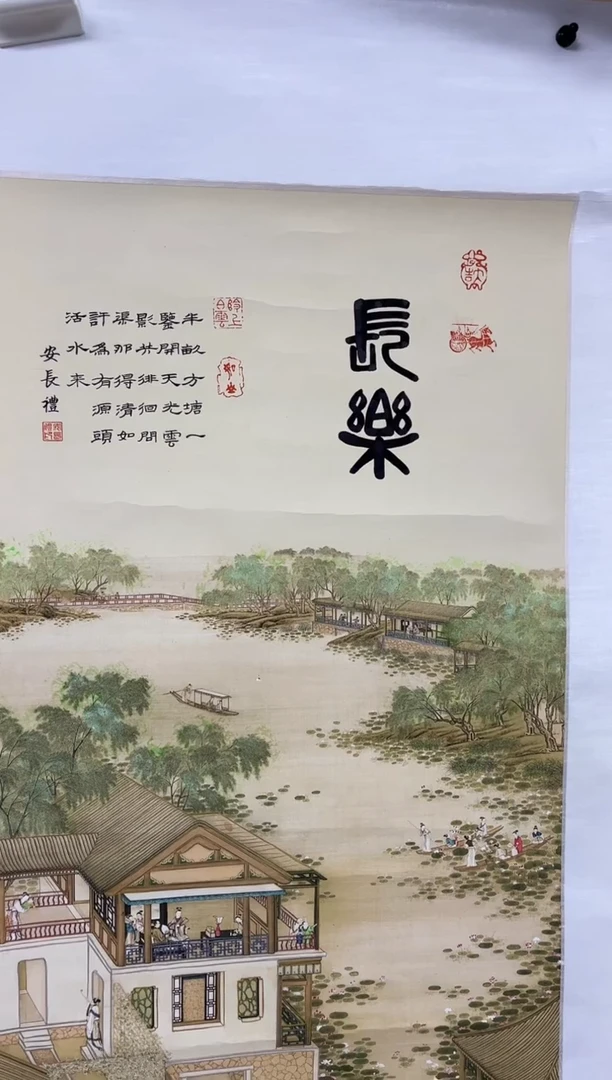 長樂
半畝方塘一
鑒開天光雲
影共徘徊問
渠那得清如
許為有源頭
活水來
安長禮